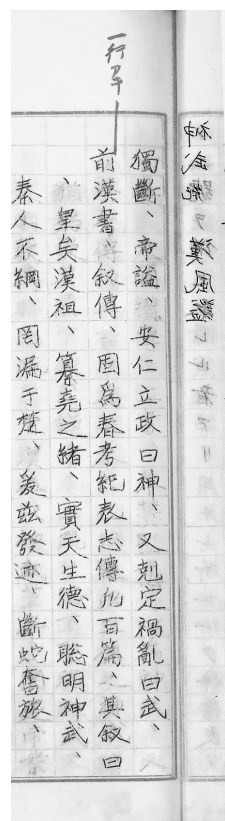 神武紀ヲ漢風謚
一行アキ
獨斷、帝謚、安仁立政曰神、又剋定禍亂曰武、
前漢書、敘傳、固爲春考紀表志傳凡百篇、其敘曰
、皇矣漢祖、纂堯之緒、實天生德、聡明神武、
秦人不綱、罔漏于楚、爰茲發迹、斷蛇奮旅、